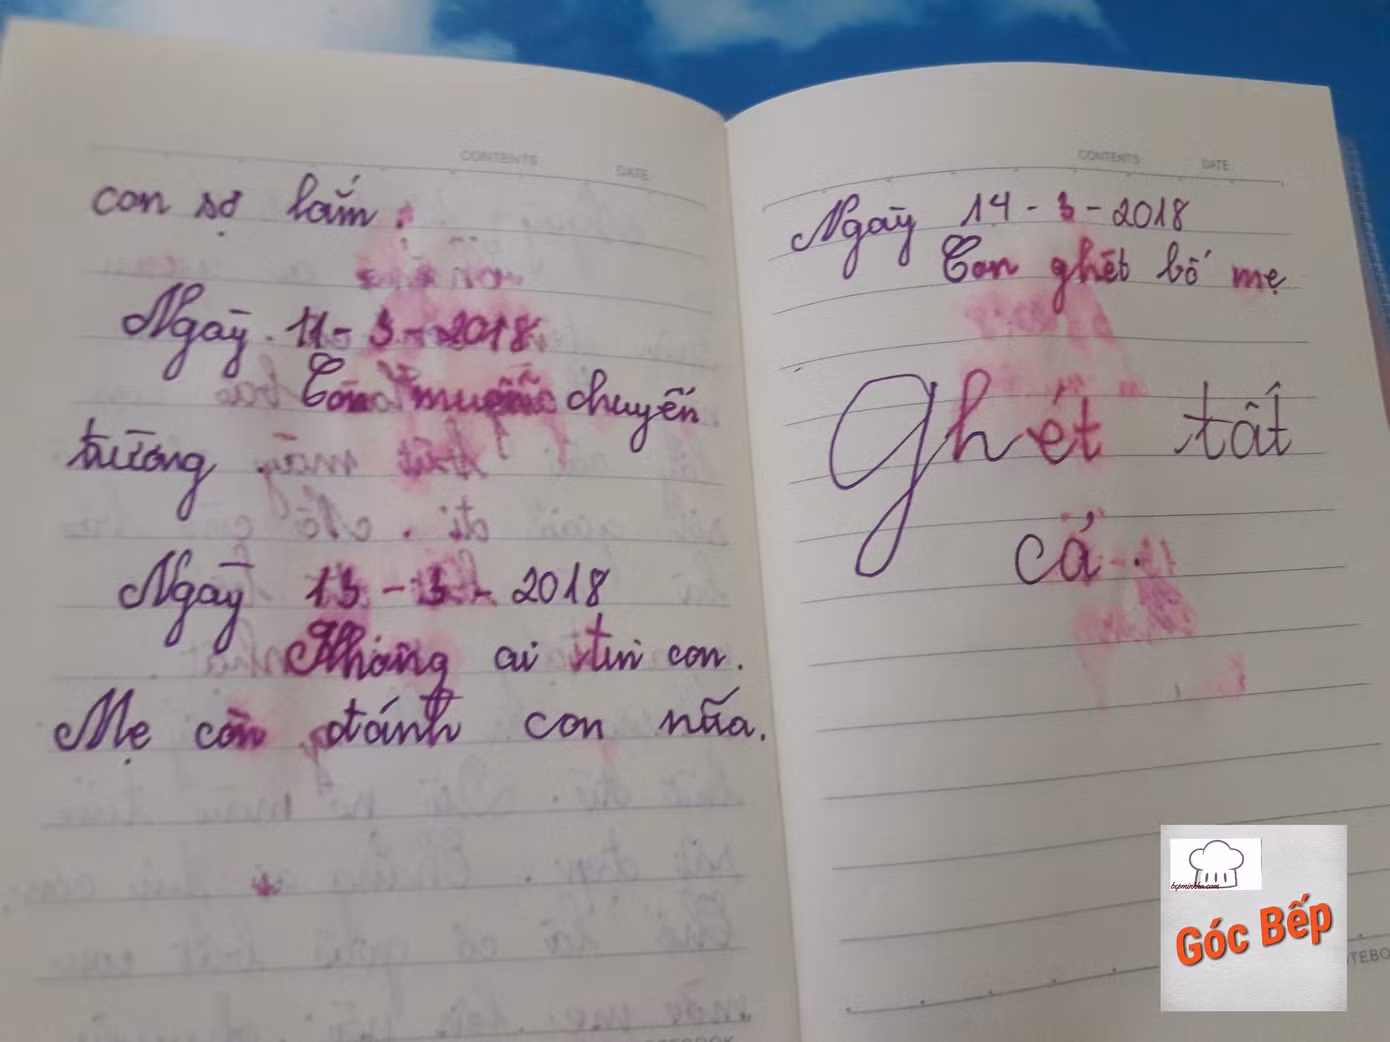 CONTENTS DATE
con sợ lắm.
Ngày 11-3-2018
Con muốn chuyển
trường
Ngày 13-3-2018
Không ai tin con.
Mẹ còn đánh con nữa.
CONTENTS DATE
Ngày 14-3-2018
Con ghét bố mẹ
Ghét tất
cả.
bepminhha.com
Góc Bếp